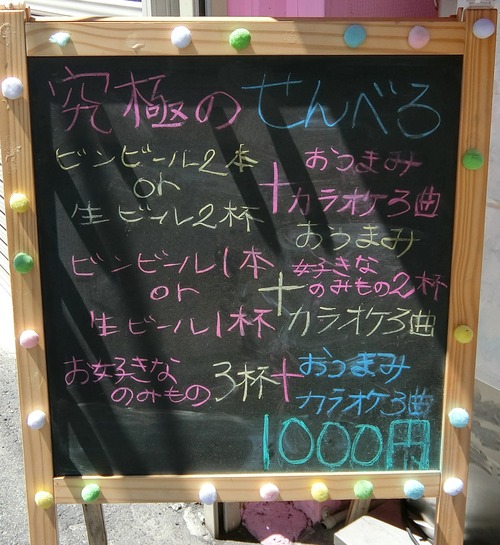 究極のせんべろ
ビンビール2本
or
生ビール2杯
+
おつまみ
カラオケ3曲
ビンビール1本
or
生ビール1杯
+
おつまみ
好きな
のみもの2杯
カラオケ3曲
お好きな
のみもの3杯
+
おつまみ
カラオケ3曲
1000円